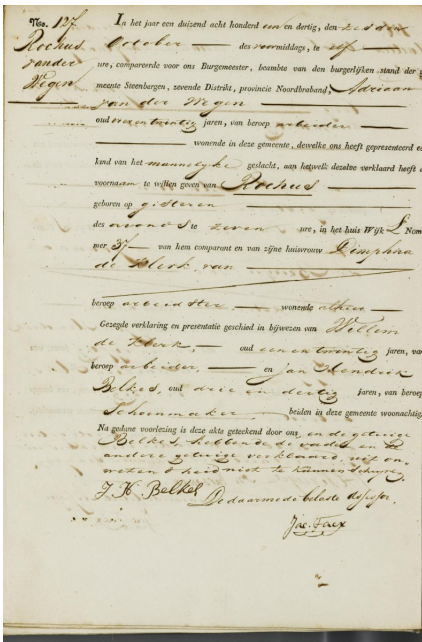 No. 127.
Rochus
van der
Wegen
In het jaar een duizend acht honderd een en dertig, den zesden
October des voormiddags, te elf
ure, compareerde voor ons Burgemeester, beambte van den burgerlijken stand der g
meente Steenbergen, zevende Distrikt, provincie Noordbraband, Adriaan
van der Wegen
oud jaren, van beroep arbeider
wonende in deze gemeente, dewelke ons heeft gepresenteerd e
kind van het mannelyke geslacht, aan hetwelk dezelve verklaard heeft d
voornaam te willen geven van Rochus
geboren op gisteren
des avonds te zeven ure, in het huis Wijk L Nom
mer 37 van hem comparant en van zijne huisvrouw Dimphna
de Klerk van
beroep arbeidster, wonende alhier
Gezegde verklaring en presentatie geschied in bijwezen van Willem
de Klerk, oud een en twintig jaren, van
beroep arbeider, en Jan Hendrik
Belkes, oud drie en dertig jaren, van beroep
Schoenmaker, beiden in deze gemeente woonachtig
Na gedane voorlezing is deze akte geteekend door ons en de getuige
Belkes, hebbende de vader en de
andere getuige verklaard, uit on-
wetendheid niet te kunnen schryven.
J. H. Belkes
De daarmede belaste assessor.
Jac. Faex